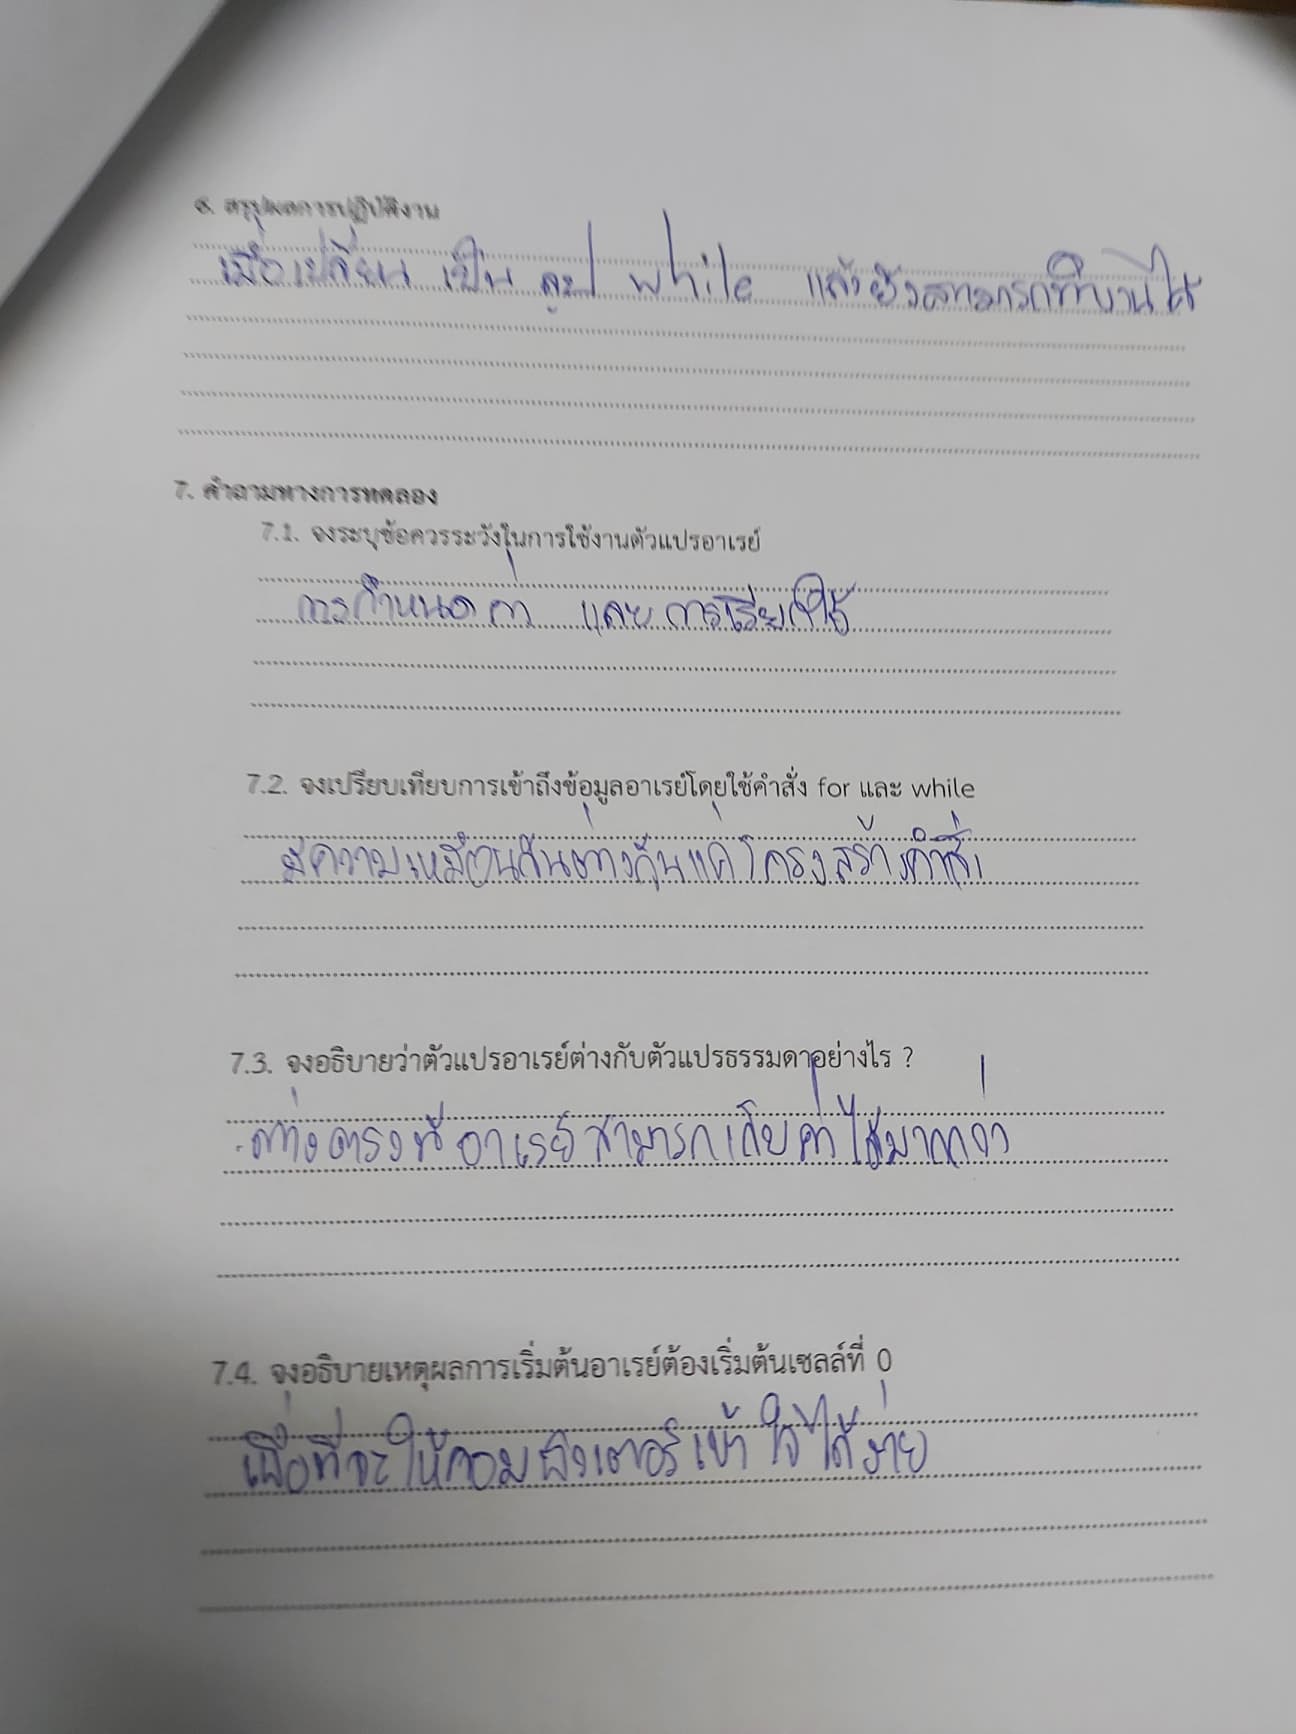 6. สรุปผลการปฏิบัติงาน
เมื่อเปลี่ยน เป็น ลูป while แล้วยังสามารถทำงานได้
7. คำถามทางการทดลอง
7.1. จงระบุข้อควรระวังในการใช้งานตัวแปรอาเรย์
การกำหนดค่า และการเรียกใช้
7.2. จงเปรียบเทียบการเข้าถึงข้อมูลอาเรย์โดยใช้คำสั่ง for และ while
มีความเหมือนกันต่างกันแค่โครงสร้างคำสั่ง
7.3. จงอธิบายว่าตัวแปรอาเรย์ต่างกับตัวแปรธรรมดาอย่างไร ?
ต่างตรงที่อาเรย์สามารถเก็บค่าได้มากกว่า
7.4. จงอธิบายเหตุผลการเริ่มต้นอาเรย์ต้องเริ่มต้นเซลล์ที่ 0
เพื่อที่จะให้คอมพิวเตอร์เข้าใจได้ง่าย